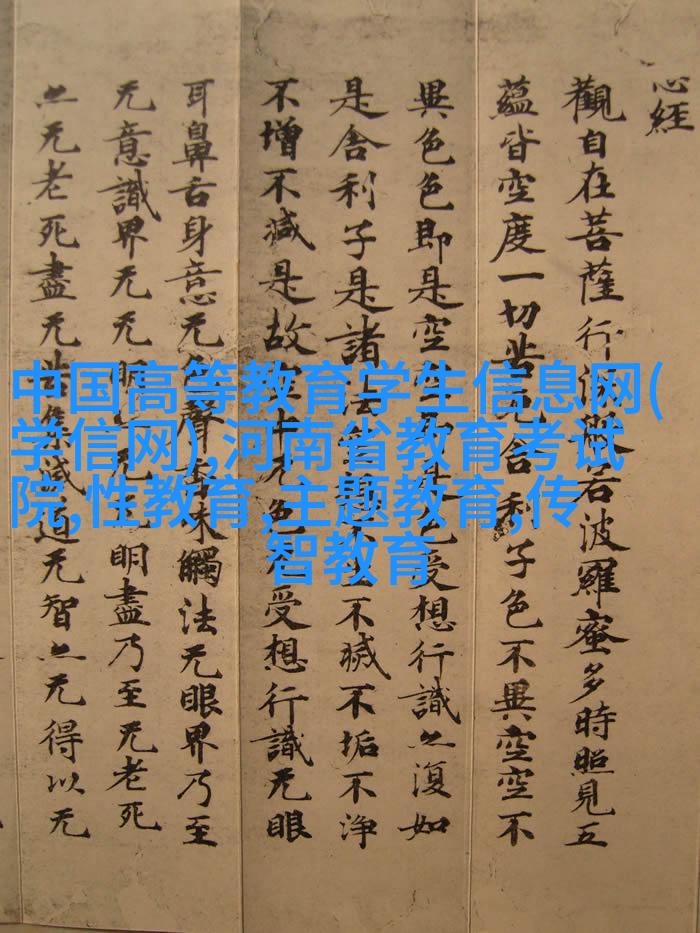 心經
觀自在菩薩行深般若波羅蜜多時照見五
蘊皆空度一切苦厄舍利子色不異空空不
異色色即是空空即是色受想行識亦復如
是舍利子是諸法空相不生不滅不垢不淨
不增不減是故空中无色无受想行識无眼
耳鼻舌身意无色聲香味觸法无眼界乃至
无意識界无无明亦无无明盡乃至无老死
亦无老死盡无苦集滅道无智亦无得以无
中国高等教育学生信息网(
学信网),河南省教育考试
院,性教育,主题教育,传
智教育